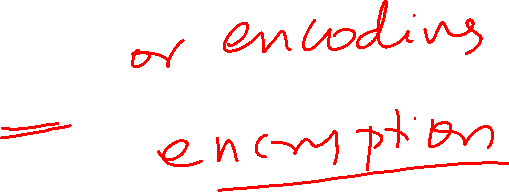 or encoding
= encryption